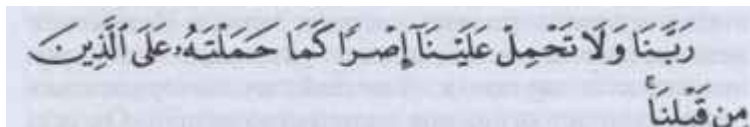 رَبَّنَا وَلَا تَحْمِلْ عَلَيْنَآ إِصْرًا كَمَا حَمَلْتَهُۥ عَلَى ٱلَّذِينَ
مِن قَبْلِنَا ۚ